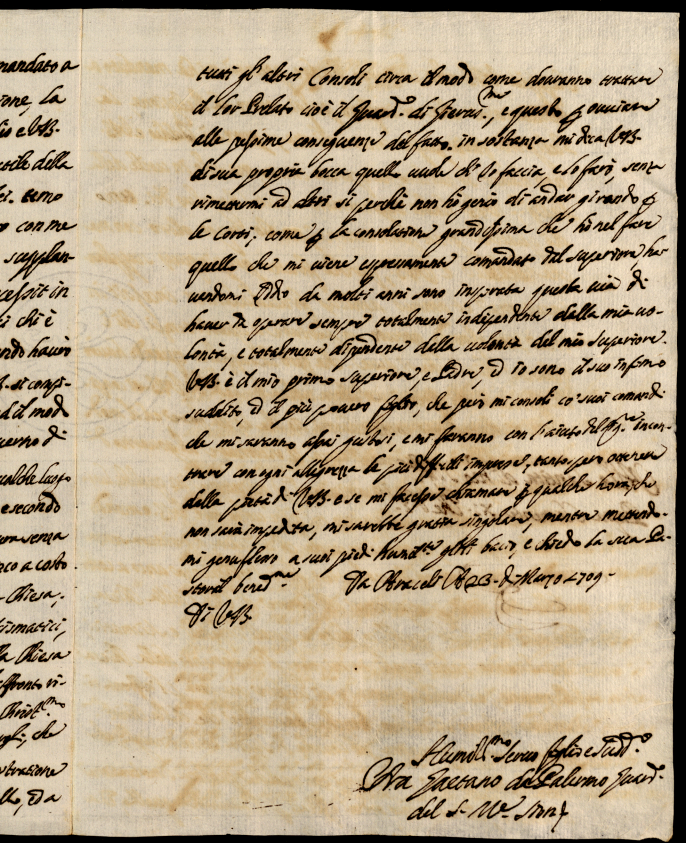 mandato a
ione, la
lio e VB.
della
lei. temo
con me
supplan-
cessit in
chi è
ndo havuto
B. si compi-
il modo
verno di
qualche luogo
e secondo
senza
a costo
Chiesa,
ismatici,
la Chiesa
affronto vi-
Christ.mo
che
ed a
tutti gl'altri Consoli circa il modo come dovranno trattare
il lor Prelato cioè il Guard.o di Gierus.me, e questo p ovviare
alle pessime conseguenze del fatto. in sostanza mi dica VB.
di sua propria bocca quello vuole ch'io faccia, e lo farò, senza
rimettermi ad altri si perche non hò genio di andar girando p
le Corti, come p la consolatione grandissima che hò nel fare
quello che mi viene espressamente comandato dal superiore ha-
vendomi Iddio da molti anni sono inspirata questa via di
haver da operare sempre totalmente indipendente dalla mia vo-
lontà, e totalmente dipendente della volontà del mio Superiore.
VB. è il mio primo superiore, e Padre, ed io sono il suo infimo
suddito, ed il più povero figlio, che però mi consoli co' suoi comandi
che mi saranno assai gustosi, e mi faranno con l'aiuto del Sig.re incon-
trare con ogni allegrezza le più difficili imprese, tanto spero ottenere
dalla pietà di VB. e se mi facesse chiamare p qualche hora, che
non sarà impedita, mi sarebbe gratia singolare, mentre mettendo-
mi genuflexo a suoi piedi humilm.te gli bacio, e chiedo la sua Pa-
storal bened.ne Da Araceli li 23. di Marzo 1709.
Di VB.
Humil.mo Servo figlio e sudd.o
Fra Gaetano da Palermo Guard.
del S. M.e Sion